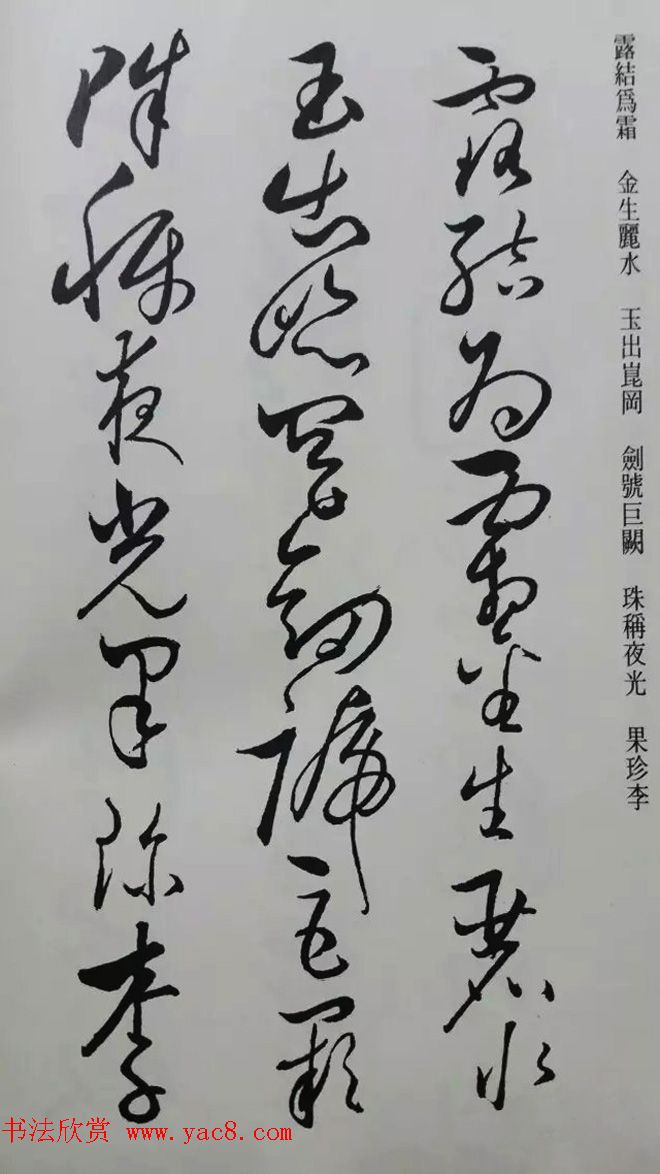 露結爲霜 金生麗水 玉出崑岡 劍號巨闕 珠稱夜光 果珍李
露結為霜金生麗水
玉出崑岡劍號巨闕
珠稱夜光果珍李
书法欣赏 www.yac8.com